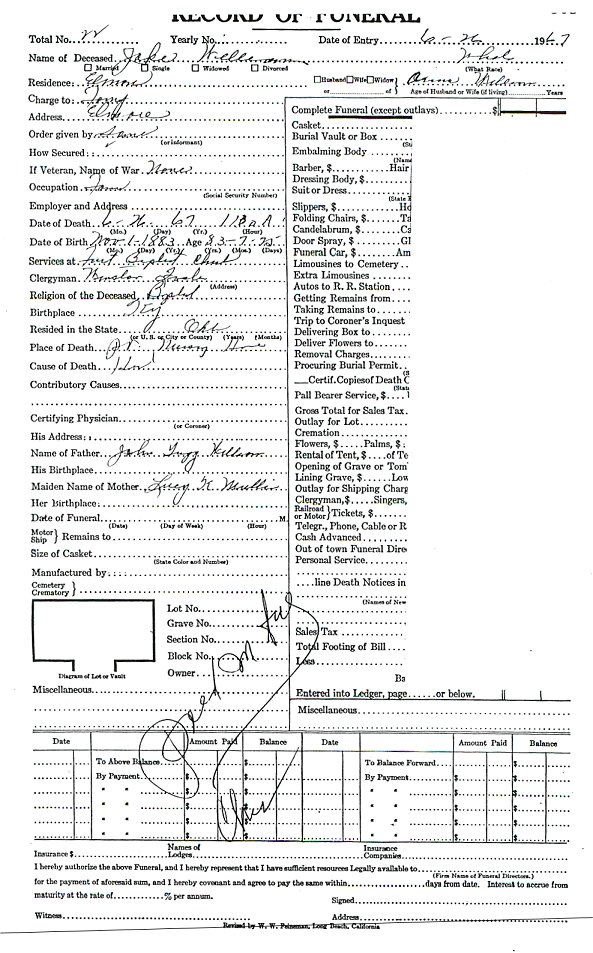 RECORD OF FUNERAL
Total No. Yearly No. Date of Entry 6-26 1967
Name of Deceased Jake Williams
Married Single Widowed Divorced (What Race)
Residence: Elmore Husband Wife Widow Anna Williams
or of Age of Husband or Wife (if living) Years
Charge to:
Address Elmore
Order given by
(or informant)
How Secured:
If Veteran, Name of War None
Occupation
(Social Security Number)
Employer and Address
Date of Death 6-26-67 A.
(Mo.) (Day) (Yr.) (Hour)
Date of Birth Nov. 1-1883 Age 83-7-25
(Mo.) (Day) (Yr.) (Yrs.) (Mos.) (Days)
Services at First Baptist Church
Clergyman
(Address)
Religion of the Deceased Baptist
Birthplace Ky
Resided in the State Okla
(or U. S. or City or County) (Years) (Months)
Place of Death P.V. Nursing Home
Cause of Death
Contributory Causes
Certifying Physician
(or Coroner)
His Address:
Name of Father John
His Birthplace
Maiden Name of Mother Lucy K. Mullins
Her Birthplace
Date of Funeral M.
(Date) (Day of Week) (Hour)
Motor Ship } Remains to
Size of Casket
(State Color and Number)
Manufactured by:
Cemetery Crematory }
Lot No.
Grave No.
Section No.
Block No.
Owner
Diagram of Lot or Vault
Miscellaneous
Complete Funeral (except outlays) $
Casket
Burial Vault or Box
(Su
Embalming Body
(Name
Barber, $ Hair
Dressing Body, $
Suit or Dress
(State
Slippers, $ Ho
Folding Chairs, $ Ta
Candelabrum, $ Ca
Door Spray, $ Gl
Funeral Car, $ Am
Limousines to Cemetery
Extra Limousines
Autos to R. R. Station
Getting Remains from
Taking Remains to
Trip to Coroner's Inquest
Delivering Box to
Deliver Flowers to
Removal Charges
Procuring Burial Permit
(S
Certif. Copies of Death C
(State
Pall Bearer Service, $
Gross Total for Sales Tax
Outlay for Lot
Cremation
Flowers, $ Palms, $
Rental of Tent, $ of Te
Opening of Grave or Tom
Lining Grave, $ Low
Outlay for Shipping Charg
Clergyman, $ Singers,
Railroad or Motor } Tickets, $
Telegr., Phone, Cable or R
Cash Advanced
Out of town Funeral Dire
Personal Service
line Death Notices in
(Names of New
Sales Tax
Total Footing of Bill
Less
Ba
Entered into Ledger, page or below.
Miscellaneous
Date Amount Paid Balance Date Amount Paid Balance
To Above Balance $ $ To Balance Forward $ $
By Payment $ $ By Payment $ $
" " $ $ " " $ $
" " $ $ " " $ $
" " $ $ " " $ $
Insurance $ Names of Lodges Insurance Companies
I hereby authorize the above Funeral, and I hereby represent that I have sufficient resources Legally available to
(Firm Name of Funeral Directors.)
for the payment of aforesaid sum, and I hereby covenant and agree to pay the same within days from date. Interest to accrue from
maturity at the rate of % per annum. Signed
Witness Address
Revised by W. W. Peineman, Long Beach, California